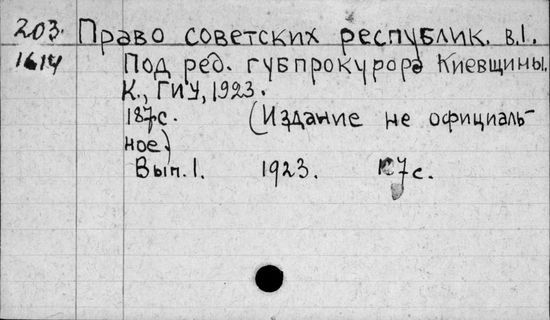 203. Право советских республик. в.1.
1614 Под ред. губпрокурора Киевщины.
К., ГИУ, 1923.
187с. (Издание не официаль-
ное)
Вып. 1. 1923. 7с.